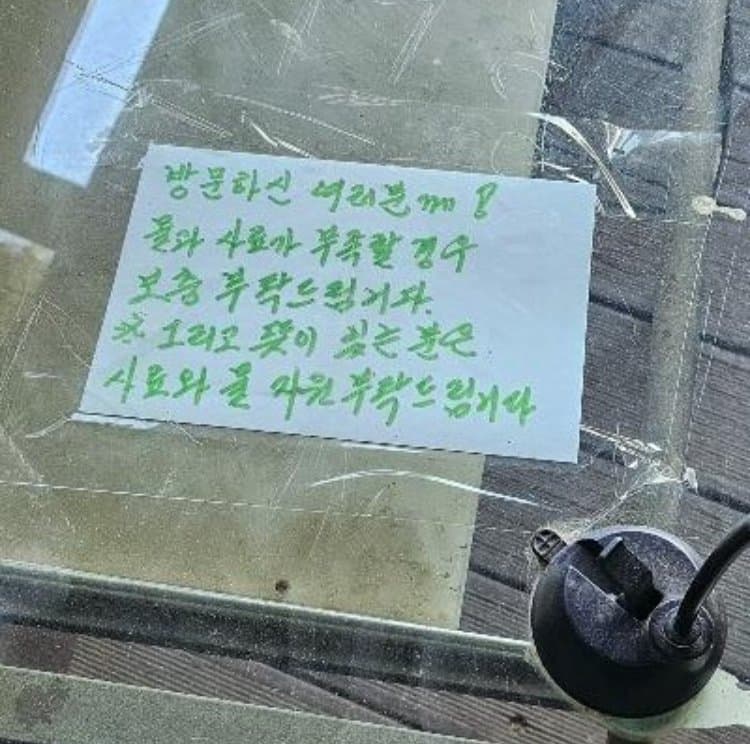 방문하신 여러분께!
물과 사료가 부족할 경우
보충 부탁드립니다.
※ 그리고 뜻이 있는 분은
사료와 물 지원 부탁드립니다